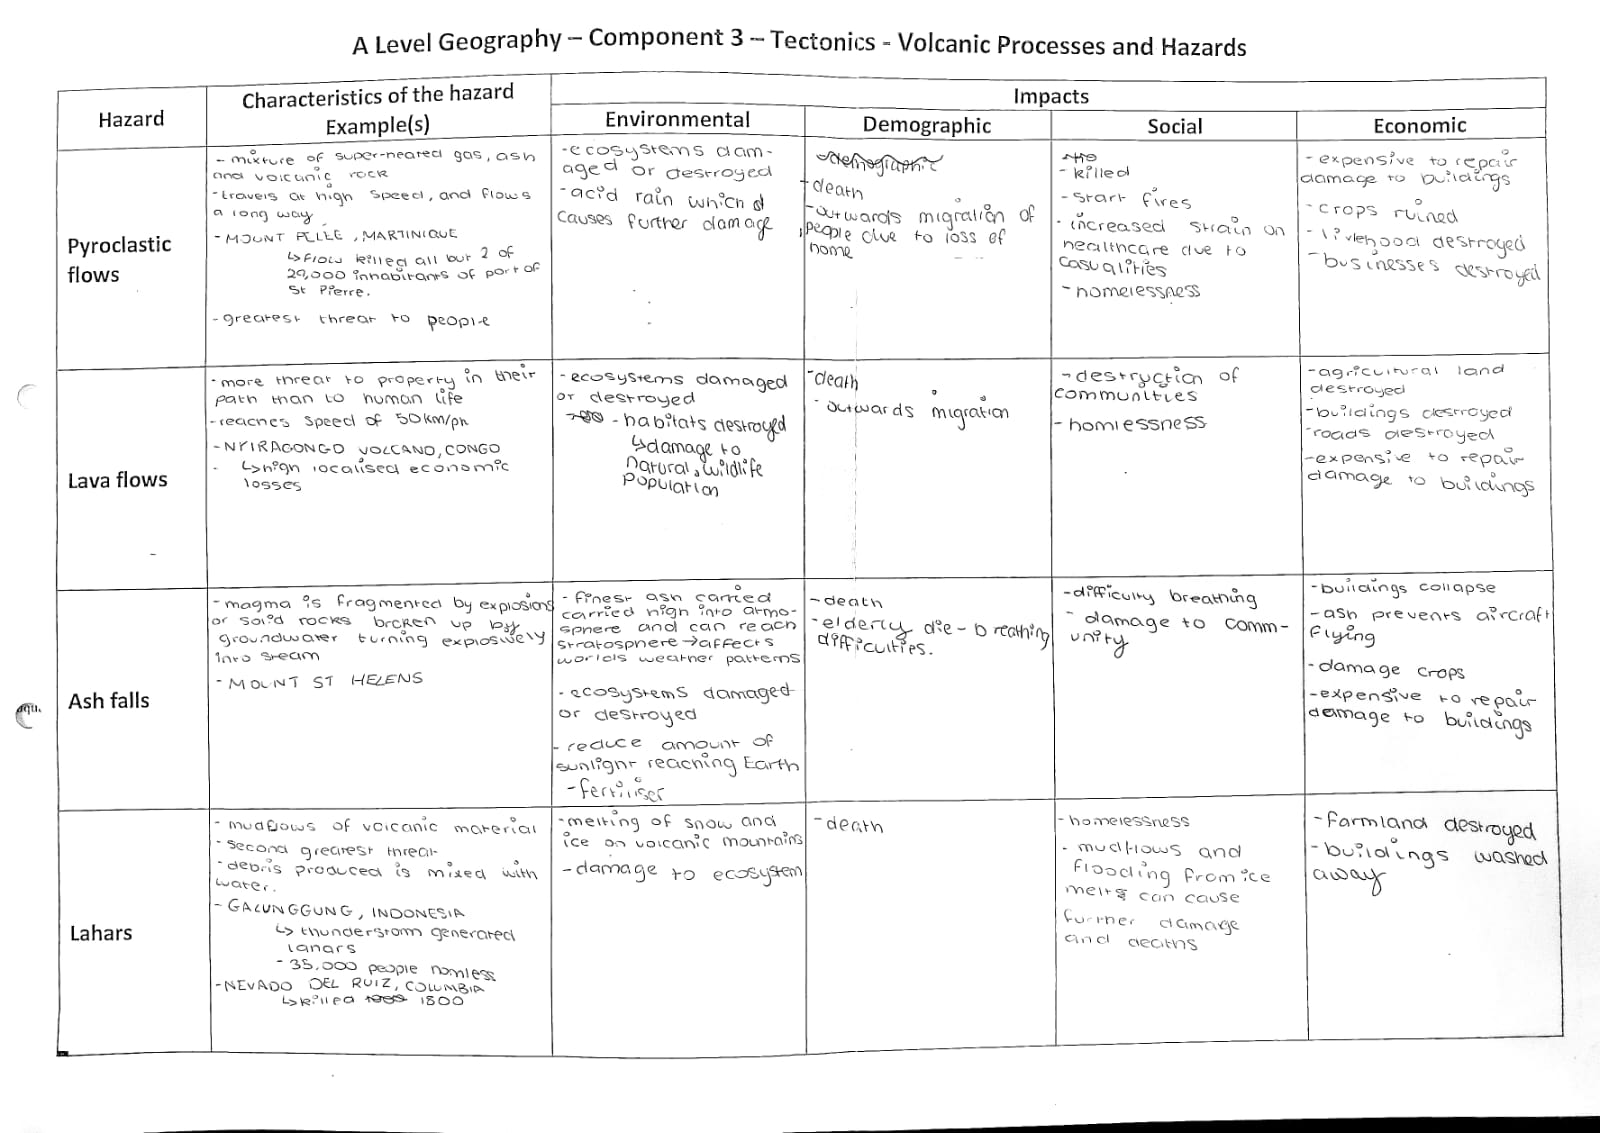 A Level Geography – Component 3 – Tectonics - Volcanic Processes and Hazards
Hazard
Characteristics of the hazard
Example(s)
Impacts
Environmental
Demographic
Social
Economic
Pyroclastic
flows
- mixture of super-heated gas, ash
and volcanic rock
- travels at high speed, and flows
a long way
- MOUNT PELLE, MARTINIQUE
↳ flow killed all but 2 of
29,000 inhabitants of port of
St Pierre.
- greatest threat to people
- ecosystems dam-
aged or destroyed
- acid rain which
causes further damage
demographic
- death
- outwards migration of
people due to loss of
home
- killed
- start fires
- increased strain on
healthcare due to
casualities
- homelessness
- expensive to repair
damage to buildings
- crops ruined
- livlehood destroyed
- businesses destroyed
Lava flows
- more threat to property in their
path than to human life
- reaches speed of 50km/ph
- NYIRAGONGO VOLCANO, CONGO
↳ high localised economic
losses
- ecosystems damaged
or destroyed
- habitats destroyed
↳ damage to
natural, wildlife
population
- death
- outwards migration
- destruction of
communities
- homlessness
- agricultural land
destroyed
- buildings destroyed
- roads destroyed
- expensive to repair
damage to buildings
Ash falls
- magma is fragmented by explosions
or solid rocks broken up by
groundwater turning explosively
into steam
- MOUNT ST HELENS
- finest ash carried
carried high into atmo-
sphere and can reach
stratosphere → affects
worlds weather patterns
- ecosystems damaged
or destroyed
- reduce amount of
sunlight reaching Earth
- fertiliser
- death
- elderly die - breathing
difficulties.
- difficulty breathing
- damage to comm-
unity
- buildings collapse
- ash prevents aircraft
flying
- damage crops
- expensive to repair
damage to buildings
Lahars
- mudflows of volcanic material
- second greatest threat
- debris produced is mixed with
water.
- GALUNGGUNG, INDONESIA
↳ thunderstom generated
lahars
- 35,000 people homless
- NEVADO DEL RUIZ, COLUMBIA
↳ killed 1800
- melting of snow and
ice on volcanic mountains
- damage to ecosystem
- death
- homelessness
- mudflows and
flooding from ice
melts can cause
further damage
and deaths
- farmland destroyed
- buildings washed
away